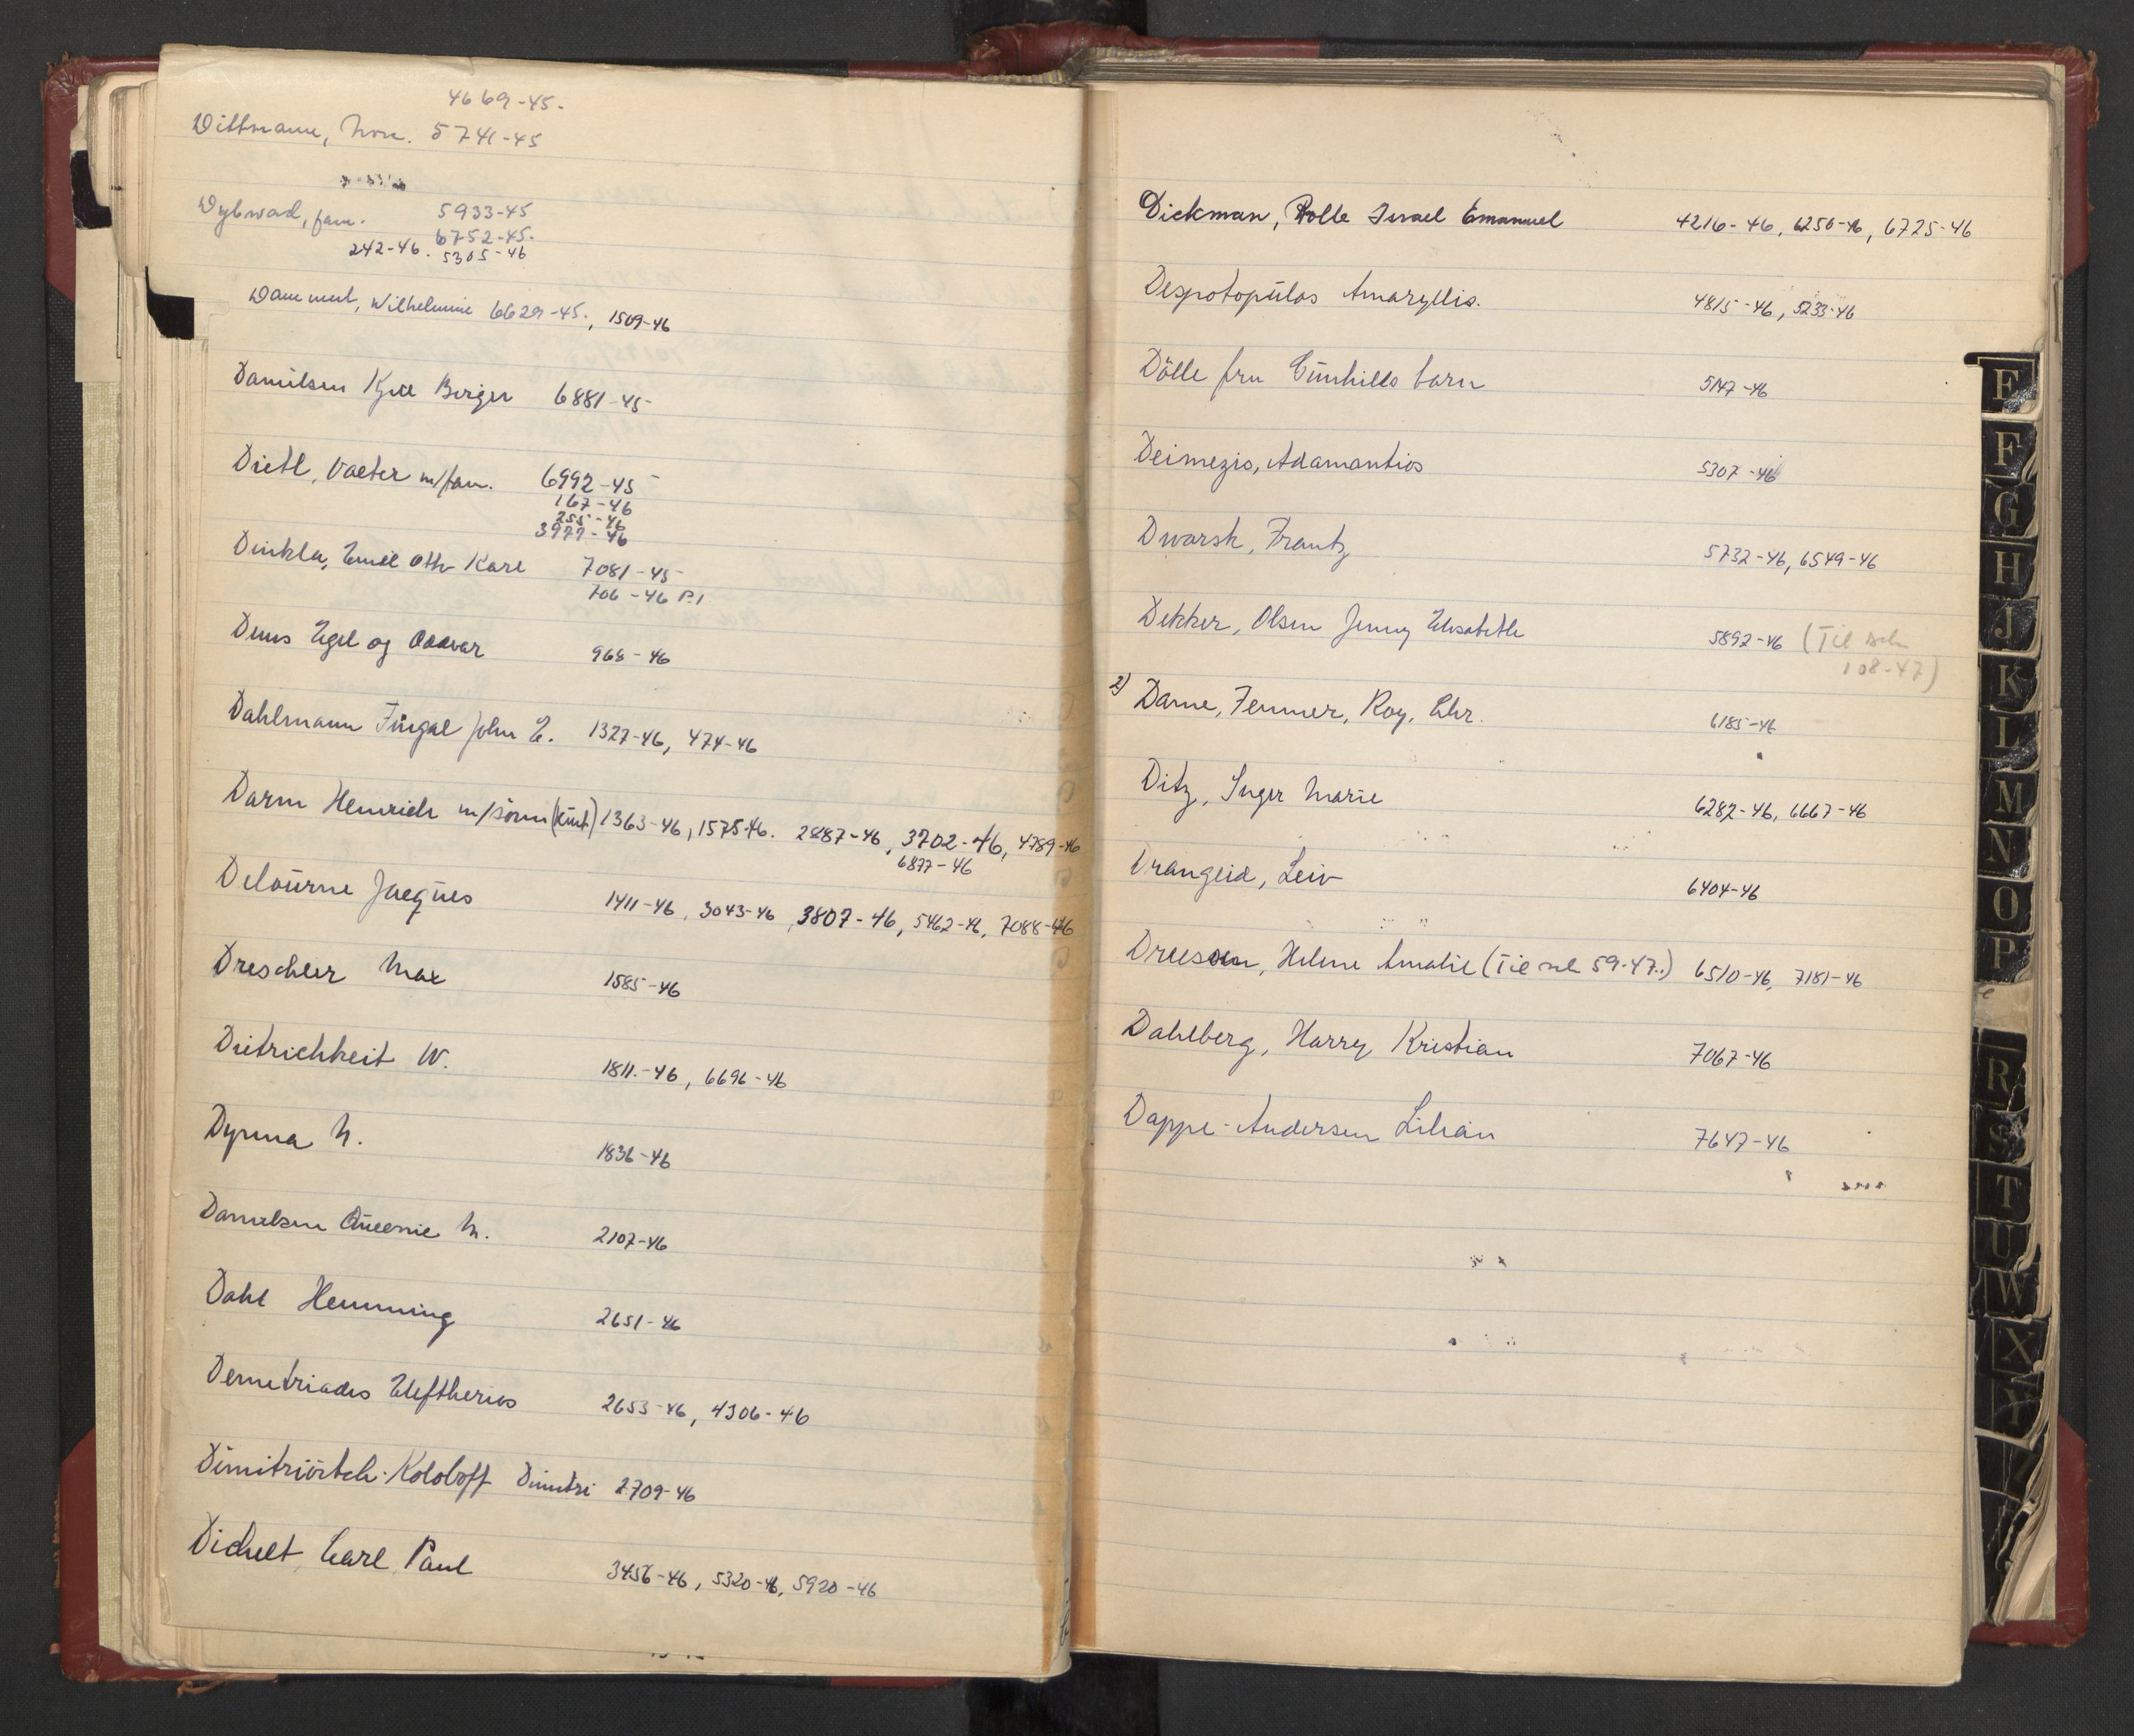 4669-45-
Dittmann, 5741-45
Dybwad, fam. 5933-45
6752-45.
242-46. 5305-46
Wilhelmine 6629-45., 1509-46
Danielsen Kjell Birger 6881-45
Dietl, Valter m/fam. 6992-45
167-46
255-46
3977-46
Dinkla, Emil Otto Karl 7081-45
706-46 P.1
Egil og 968-46
Dahlmann Fingal John E. 1327-46, 474-46
Darm Heinrich m/sönn (Kurt) 1363-46, 1575-46. 2887-46, 3702-46, 4789-46
6877-46
Delourne Jacques 1411-46, 3043-46, 3807-46, 5462-46, 7088-46
Drescher Max 1585-46
Dietrichkeit W. 1811-46, 6696-46
Dyrma M. 1836-46
Danielsen Queenie M. 2107-46
Dahl Hemming 2651-46
Demetriades Eleftherios 2653-46, 4306-46
Koloboff Dimitri 2709-46
Carl Paul 3456-46, 5320-46, 5920-46
Dickman, Rolle Israel Emanuel 4216-46, 6250-46, 6725-46
Despotopúlos Amaryllis. 4815-46, 5233-46
Dölle fru Gunhilds barn 5147-46
Deimezis, Adamantios 5307-46
Dworsk, Frantz 5732-46, 6549-46
Dekker, Olsen Jenny Elisabeth 5892-46 (Til
108-47)
2) Dame, Femmer, Roy, Chr. 6185-46
Ditz, Inger Marie 6282-46, 6667-46
Drangeid, Leiv 6404-46
Dreesen, Helene Amalie (Til 59-47.) 6510-46, 7181-46
Dahlberg, Harry Kristian 7067-46
Dappe-Andersen Lilian 7647-46
E
F
G
H
J
K
L
M
N
O
P
R
S
T
U
W
X
Y